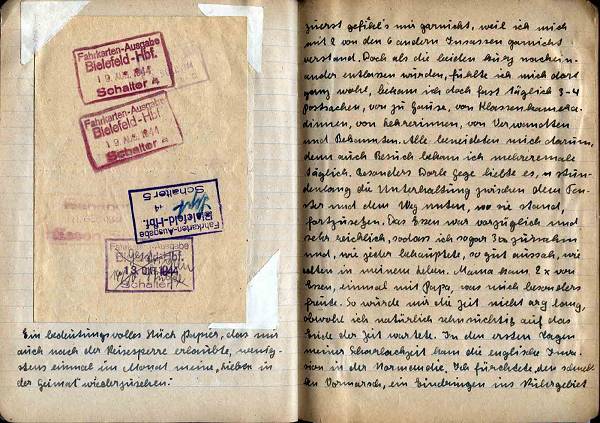 Fahrkarten-Ausgabe
Bielefeld-Hbf.
19. AUG. 1944
Schalter 4
Fahrkarten-Ausgabe
Bielefeld-Hbf
19. AUG. 1944
Schalter 4
Fahrkarten-Ausgabe
Bielefeld-Hbf.
Sept. 44
Schalter 5
Fahrkarten-Ausgabe
Bielefeld-Hbf.
13. Okt. 1944
Schalter
Ein bedeutungsvolles Stück Papier, das mir
auch nach der Reisesperre erlaubte, wenig-
stens einmal im Monat meine „Lieben in
der Heimat" wiederzusehen.
zuerst gefiel's mir garnicht, weil ich mich
mit 2 von den 6 andern Insassen garnicht
verstand. Doch als die beiden kurz nachein-
ander entlassen wurden, fühlte ich mich dort
ganz wohl, bekam ich doch fast täglich 3-4
Postsachen, von zu Hause, von Klassenkamera-
dinnen, von Lehrerinnen, von Verwandten
und Bekannten. Alle beneideten mich darum,
denn auch Besuch bekam ich mehreremale
täglich. Besonders Dorle liebte es, stun-
denlang die Unterhaltung zwischen dem Fen-
ster und dem Weg unten, wo sie stand,
fortzusetzen. Das Essen war vorzüglich und
sehr reichlich, sodass ich sogar zunahm
und, wie jeder behauptete, so gut aussah, wie
selten in meinem Leben. Mama kam 2 x von
Essen, einmal mit Papa, was mich besonders
freute. So wurde mir die Zeit nicht arg lang,
obwohl ich natürlich sehnsüchtig auf das
Ende der Zeit wartete. In den ersten Tagen
meiner Scharlachzeit kam die englische Inva-
sion in der Normandie. Ich fürchtete den schnel-
len Vormarsch, ein Eindringen ins Ruhrgebiet